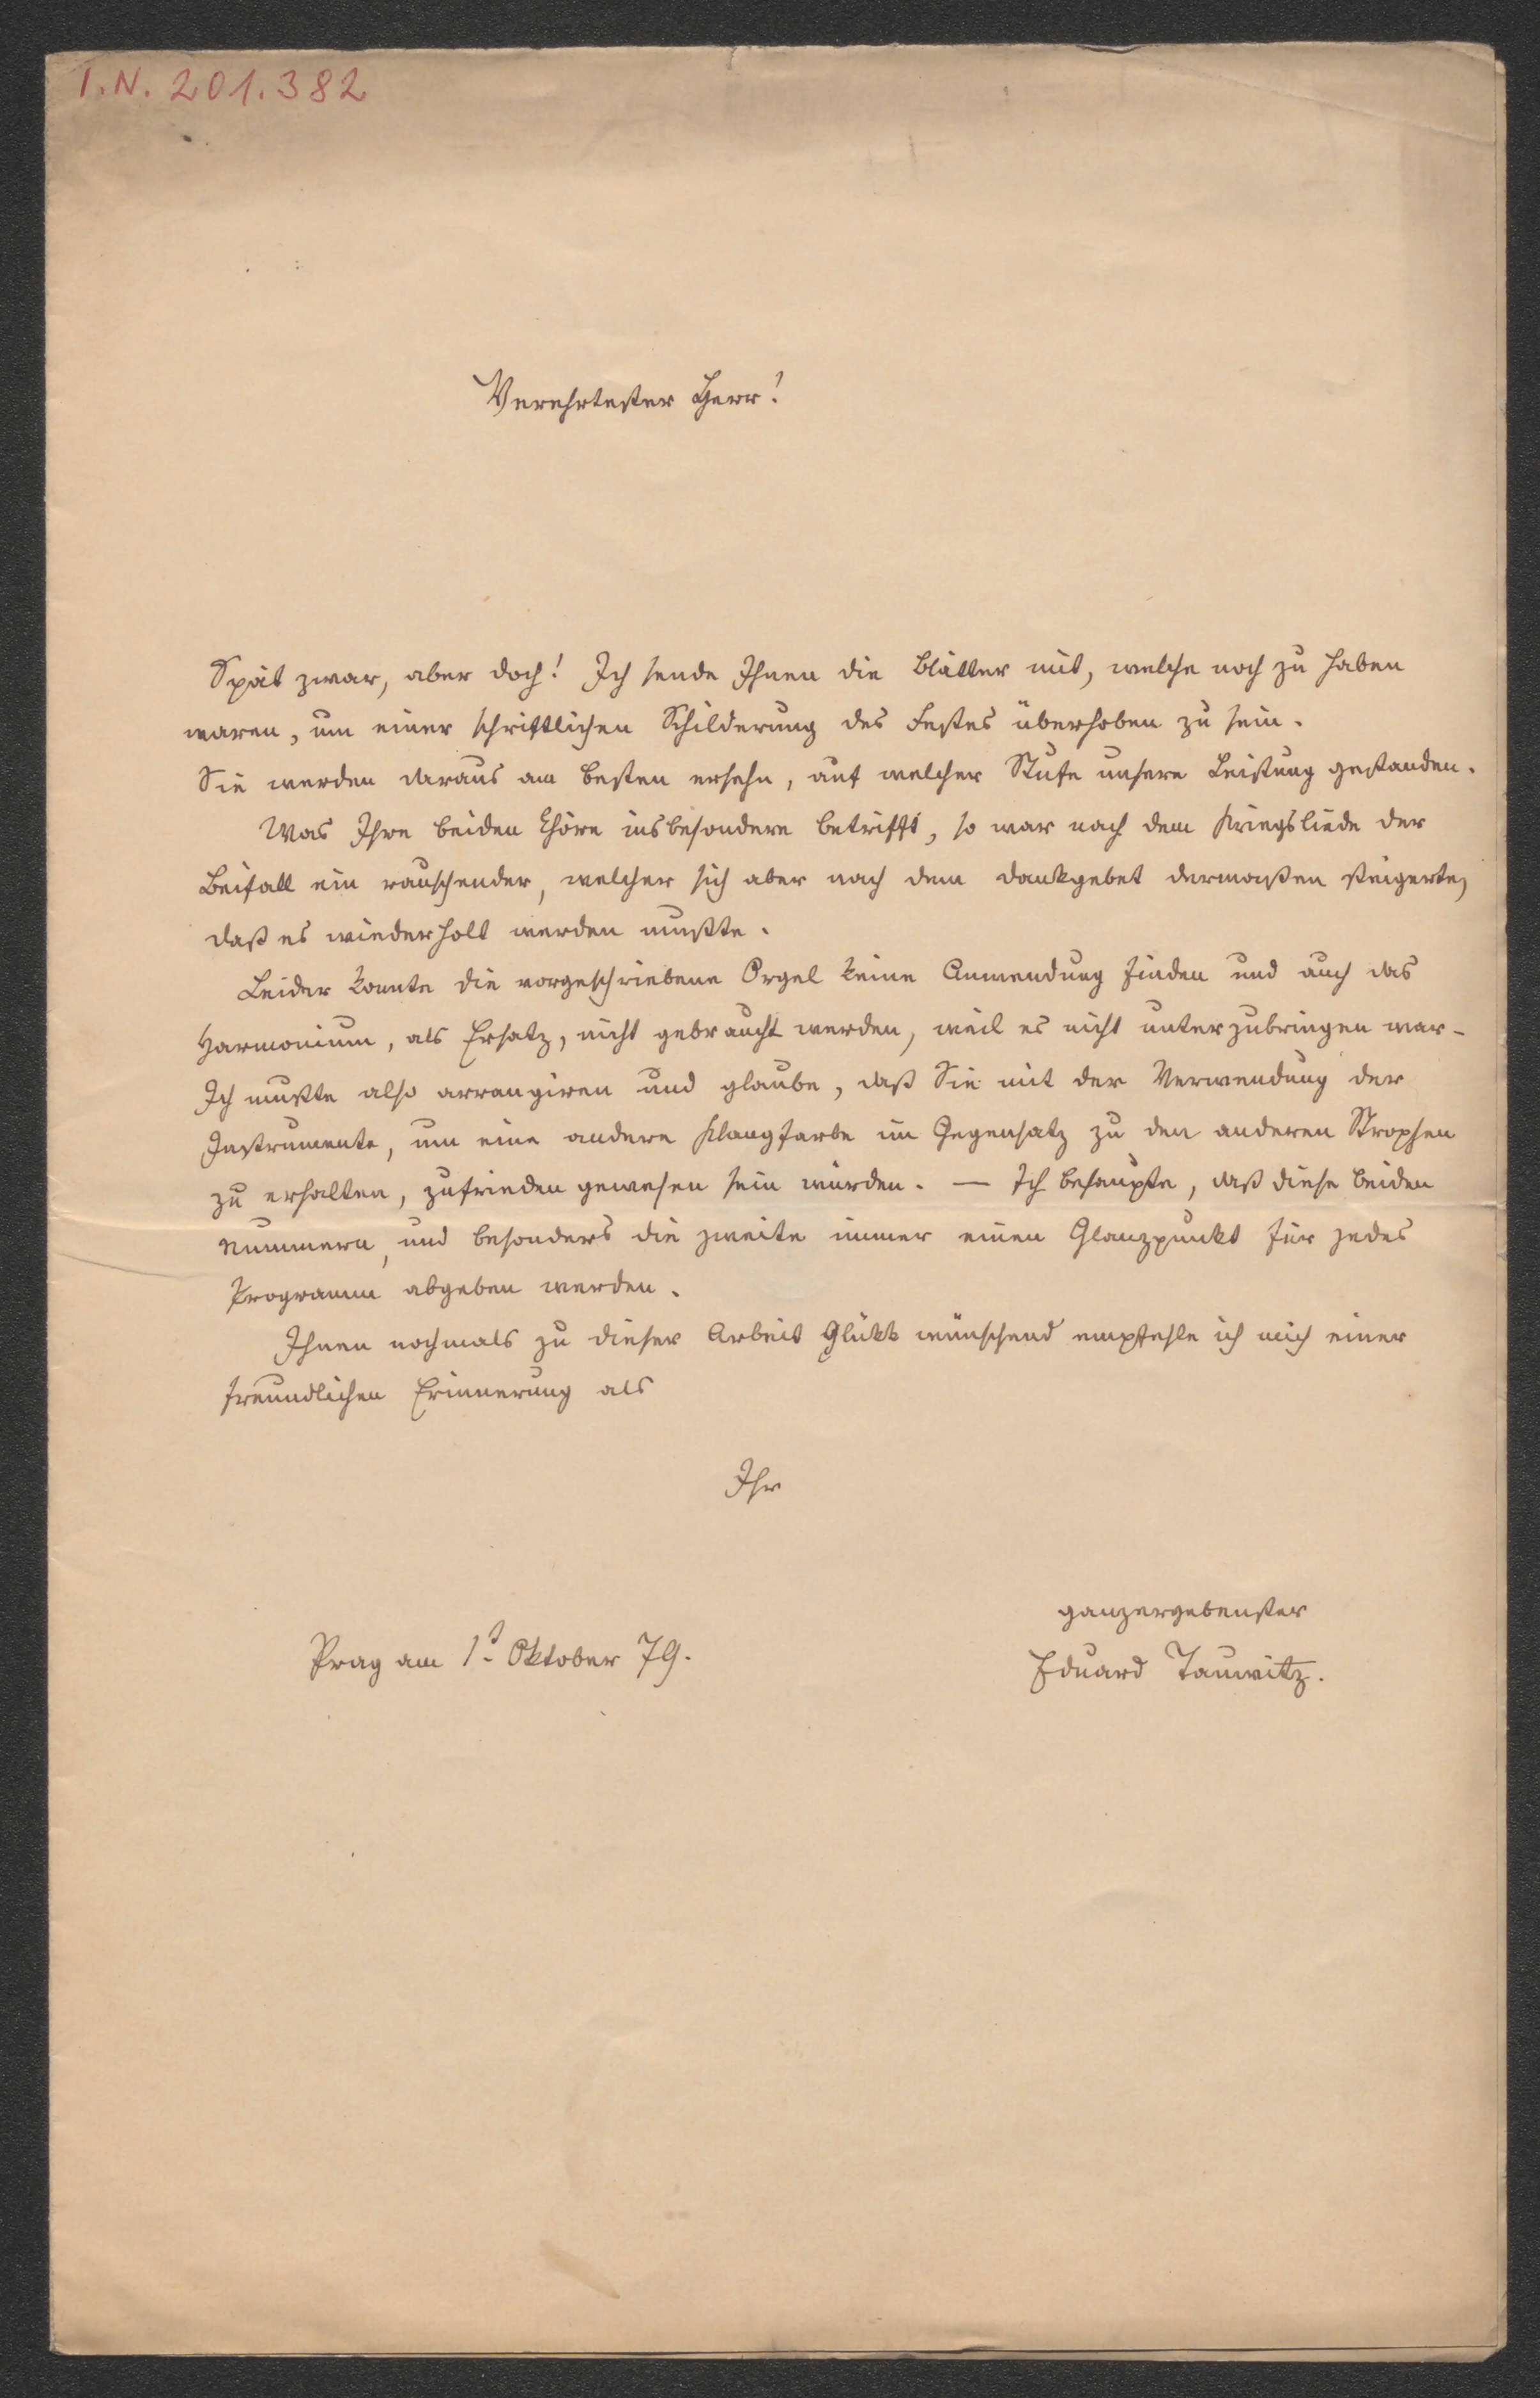 I.N. 201.382
Verehrtester Herr!
Spät zwar, aber doch! Ich sende Ihnen die Blätter mit, welche noch zu haben
waren, um einer schriftlichen Schilderung des Festes überhoben zu sein.
Sie werden daraus am besten ersehn, auf welcher Stufe unsere Leistung gestanden.
Was Ihre beiden Chöre insbesondere betrifft, so war nach dem Kriegsliede der
Beifall ein rauschender, welcher sich aber nach dem Dankgebet dermaßen steigerte,
daß es wiederholt werden mußte.
Leider konnte die vorgeschriebene Orgel keine Anwendung finden und auch das
Harmonium, als Ersatz, nicht gebraucht werden, weil es nicht unterzubringen war-
Ich mußte also arrangiren und glaube, daß Sie mit der Verwendung der
Instrumente, um eine andere Klangfarbe im Gegensatz zu den anderen Strophen
zu erhalten, zufrieden gewesen sein würden. — Ich behaupte, daß diese beiden
Nummern, und besonders die zweite immer einen Glanzpunkt für jedes
Programm abgeben werden.
Ihnen nochmals zu dieser Arbeit Glükk wünschend empfehle ich mich einer
freundlichen Erinnerung als
Ihr
ganzergebenster
Prag am 1. Oktober 79.
Eduard Tauwitz.